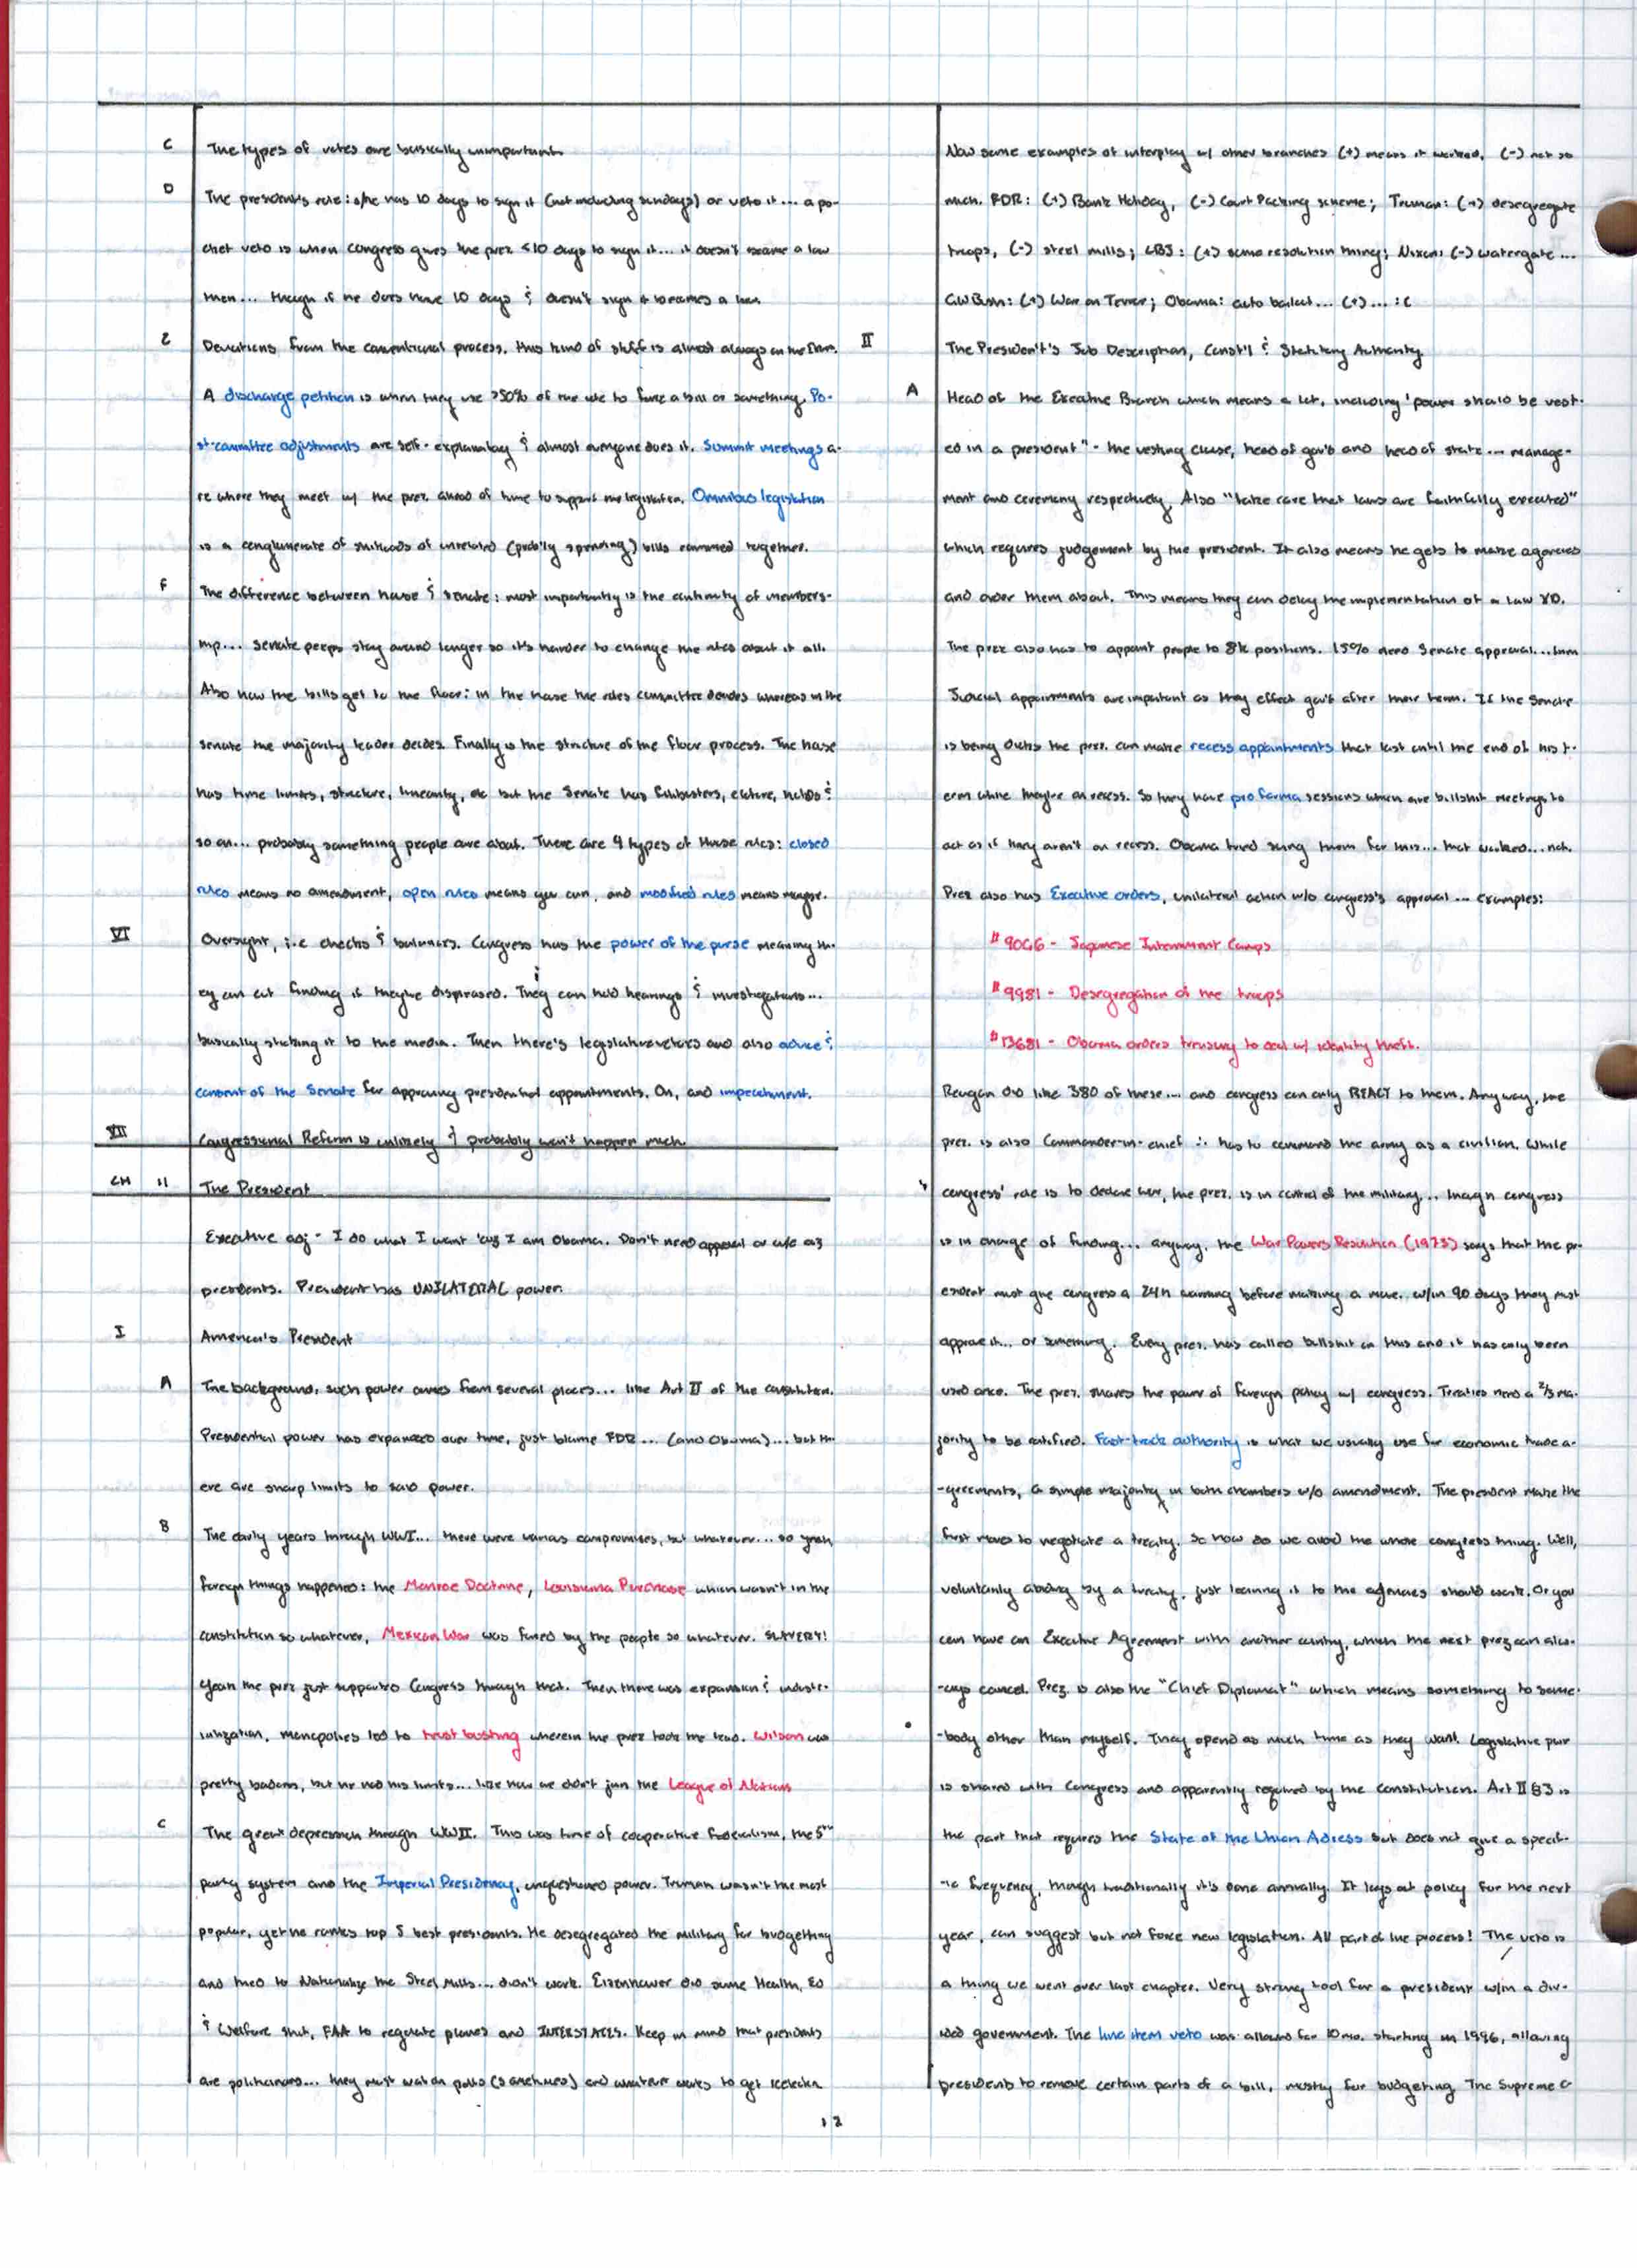 C
The types of votes are basically unimportant.
D
The president's role: s/he has 10 days to sign it (not including sundays) or veto it... a po-
cket veto is when congress gives the prez <10 days to sign it... it doesn't become a law
then... though if he does have 10 days & doesn't sign it becomes a law.
E
Deviations from the conventional process, this kind of stuff is almost always on the
A discharge petition is when they use >50% of the vote to force a bill or something. Po-
st-committee adjustments are self-explanatory & almost everyone does it. Summit meetings a-
re where they meet w/ the prez ahead of time to support the legislation. Omnibus legislation
is a conglomerate of of unrelated (prob'ly spending) bills rammed together.
F
The difference between house & senate: most importantly is the continuity of members-
hip... Senate peeps stay around longer so it's harder to change the rules about it all.
Also how the bills get to the floor: in the house the rules committee decides whereas in the
senate the majority leader decides. Finally is the structure of the floor process. The house
has time limits, structure, linearity, etc but the Senate has filibusters, cloture, holds &
so on... probably something people care about. There are 4 types of House rules: closed
rules means no amendment, open rules means you can, and modified rules means maybe.
VI
Oversight, i.e checks & balances. Congress has the power of the purse meaning th-
ey can cut funding if they're displeased. They can hold hearings & investigations...
basically sticking it to the media. Then there's legislative vetoes and also advice &
consent of the Senate for approving presidential appointments. Oh, and impeachment.
VII
Congressional Reform is unlikely & probably won't happen much.
CH 11
The President
Executive adj - I do what I want 'cuz I am Obama. Don't need approval or
presidents. President has UNILATERAL power.
I
America's President
A
The background, such power comes from several places... like Art II of the constitution.
Presidential power has expanded over time, just blame FDR... (and Obama)... but th-
ere are sharp limits to said power.
B
The early years through WWI... there were various compromises, but whatever... so yeah
foreign things happened: the Monroe Doctrine, Louisiana Purchase which wasn't in the
constitution so whatever, Mexican War was by the people so whatever. SLAVERY!
Yeah the prez just supported Congress through that. Then there was expansion & industr-
ialization, monopolies led to trust busting wherein the prez took the lead. Wilson was
pretty badass, but he had his limits... like how we didn't join the League of Nations
C
The great depression through WWII. This was time of cooperative federalism, the 5th
party system and the Imperial Presidency, unquestioned power. Truman wasn't the most
popular, yet he ranks top 5 best presidents. He desegregated the military for budgetting
and tried to Nationalize the Steel Mills... didn't work. Eisenhower did some Health, Ed
& Welfare shit, FAA to regulate planes and INTERSTATES. Keep in mind that presidents
are politicians... they must watch polls (sometimes) and whatever works to get reelection
Now some examples of interplay w/ other branches (+) means it worked, (-) not so
much. FDR: (+) Bank Holiday, (-) Court Packing scheme; Truman: (+) desegregate
troops, (-) steel mills; LBJ: (+) some resolution thing; Nixon: (-) watergate...
GW Bush: (+) War on Terror; Obama: auto bailout... (+)... :(
II
The President's Job Description, Const'l & Statutory Authority
A
Head of the Executive Branch which means a lot, including "power shall be vest-
ed in a president" - the vesting clause, head of gov't and head of state... manage-
ment and ceremony respectively. Also "take care that laws are faithfully executed"
which requires judgement by the president. It also means he gets to make agencies
and order them about. This means they can delay the implementation of a law XD.
The prez also has to appoint people to 8k positions. 15% need Senate approval...
Judicial appointments are important as they effect gov't after their term. If the Senate
is being the prez. can make recess appointments that last until the end of his t-
erm while they're on recess. So they have pro forma sessions which are bullshit meetings to
act as if they aren't on recess. Obama tried suing them for this... that worked... not.
Prez also has Executive orders, unilateral action w/o congress's approval... examples:
#9066 - Japanese Internment Camps
#9981 - Desegregation of the troops
#13681 - Obama orders treasury to deal w/ identity theft.
Reagan did like 380 of these... and congress can only REACT to them. Anyway, the
prez. is also Commander-in-chief ∴ has to command the army as a civilian. While
congress' role is to declare war, the prez. is in control of the military... though congress
is in charge of funding... anyway, the War Powers Resolution (1973) says that the pr-
esident must give congress a 24h warning before making a move. w/in 90 days they must
approve it... or something. Every prez. has called bullshit on this and it has only been
used once. The prez. shares the power of foreign policy w/ congress. Treaties need a 2/3 ma-
jority to be ratified. Fast-track authority is what we usually use for economic trade a-
-greements, a simple majority in both chambers w/o amendment. The president make the
first moves to negotiate a treaty. So how do we avoid the whole congress thing. Well,
voluntarily abiding by a treaty, just leaving it to the agencies should work. Or you
can have an Executive Agreement with another country, which the next prez can alw-
-ays cancel. Prez. is also the "Chief Diplomat" which means something to some-
-body other than myself. They spend as much time as they want. Legislative pwr
is shared with Congress and apparently required by the constitution. Art II §3 is
the part that requires the State of the Union Adress but does not give a specif-
-ic frequency, though traditionally it's done annually. It lays out policy for the next
year, can suggest but not force new legislation. All part of the process! The veto is
a thing we went over last chapter. Very strong tool for a president w/in a div-
ided government. The line item veto was allowed for 10 mo. starting in 1996, allowing
presidents to remove certain parts of a bill, mostly for budgeting. The Supreme C
12